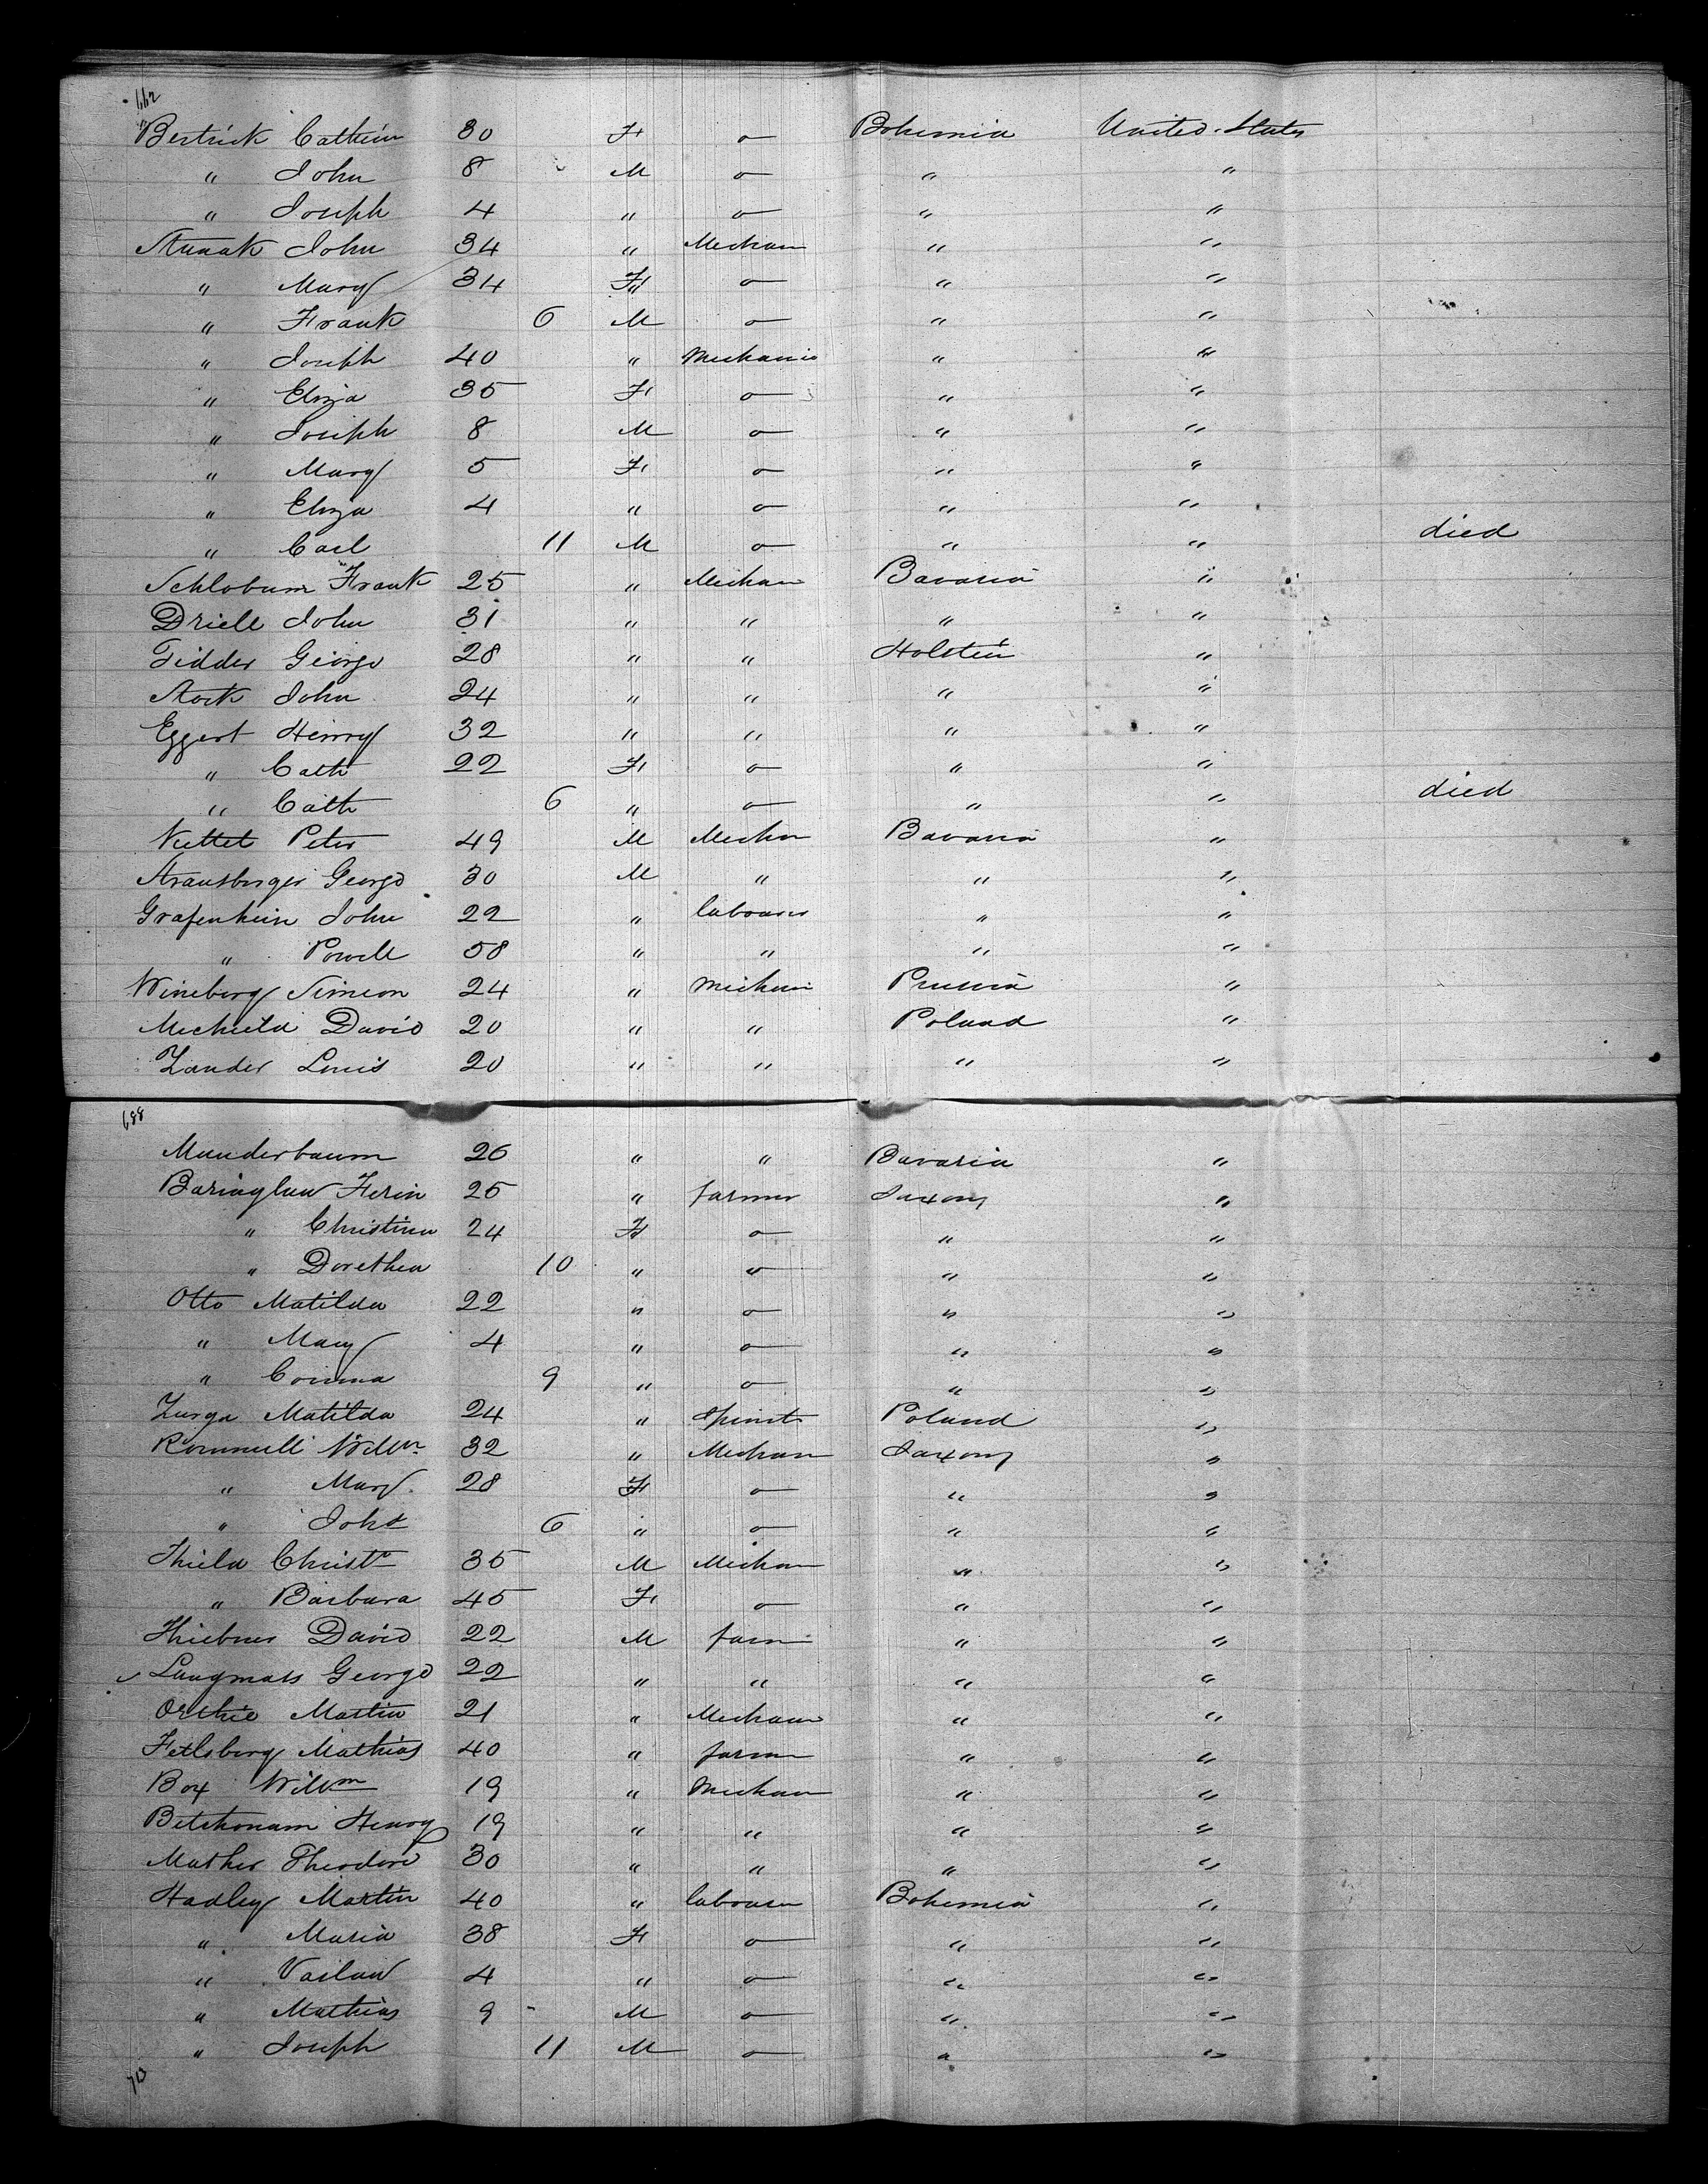 662
Bestrick Cathein 30 F o Bohemia United States
" John 8 M o " "
" Joseph 4 " o " "
Stuaak John 34 " Mechan " "
" Mary 34 F o " "
" Frank 6 M o " "
" Joseph 40 " Mechanic " "
" Eliza 35 F o " "
" Joseph 8 M o " "
" Mary 5 F o " "
" Eliza 4 " o " "
" Carl 11 M o " " died
Schlobum Frank 25 " Mechan Bavaria "
Driell John 31 " " " "
Tidder George 28 " " Holstein "
Stock John 24 " " " "
Eggert Henry 32 " " " "
" Cath 22 F o " "
" Cath 6 " o " " died
Nettet Peter 49 M Mechn Bavaria "
Strausberger George 30 M " " "
Grafenhein John 22 " labourer " "
" Powell 58 " " " "
Wineberg Simeon 24 " Mechani Prussia "
Mechield David 20 " " Poland "
Zander Louis 20 " " " "
688
Munderbaum 26 " " Bavaria "
Baringlaw Ferin 25 " farmer Saxony "
" Christina 24 F o " "
" Dorethea 10 " o " "
Otto Matilda 22 " o " "
" Mary 4 " o " "
" Corinna 9 " o " "
Zurga Matilda 24 " Spinst Poland "
Rommell Willm 32 " Mechan Saxony "
" Mary 28 F o " "
" John 6 " o " "
Thiela Christn 35 M Mechan " "
" Barbara 45 F o " "
Thiebner David 22 M farm " "
Langmats George 22 " " " "
Orthie Martin 21 " Mechan " "
Fetlsberg Mathias 40 " farm " "
Box Willm 19 " Mechan " "
Betchonam Henry 19 " " " "
Mather Theodore 30 " " " "
Hadley Martin 40 " labourer Bohemia "
" Maria 38 F o " "
" Vaclaw 4 " o " "
" Mathias 9 M o " "
" Joseph 11 M o " "
713